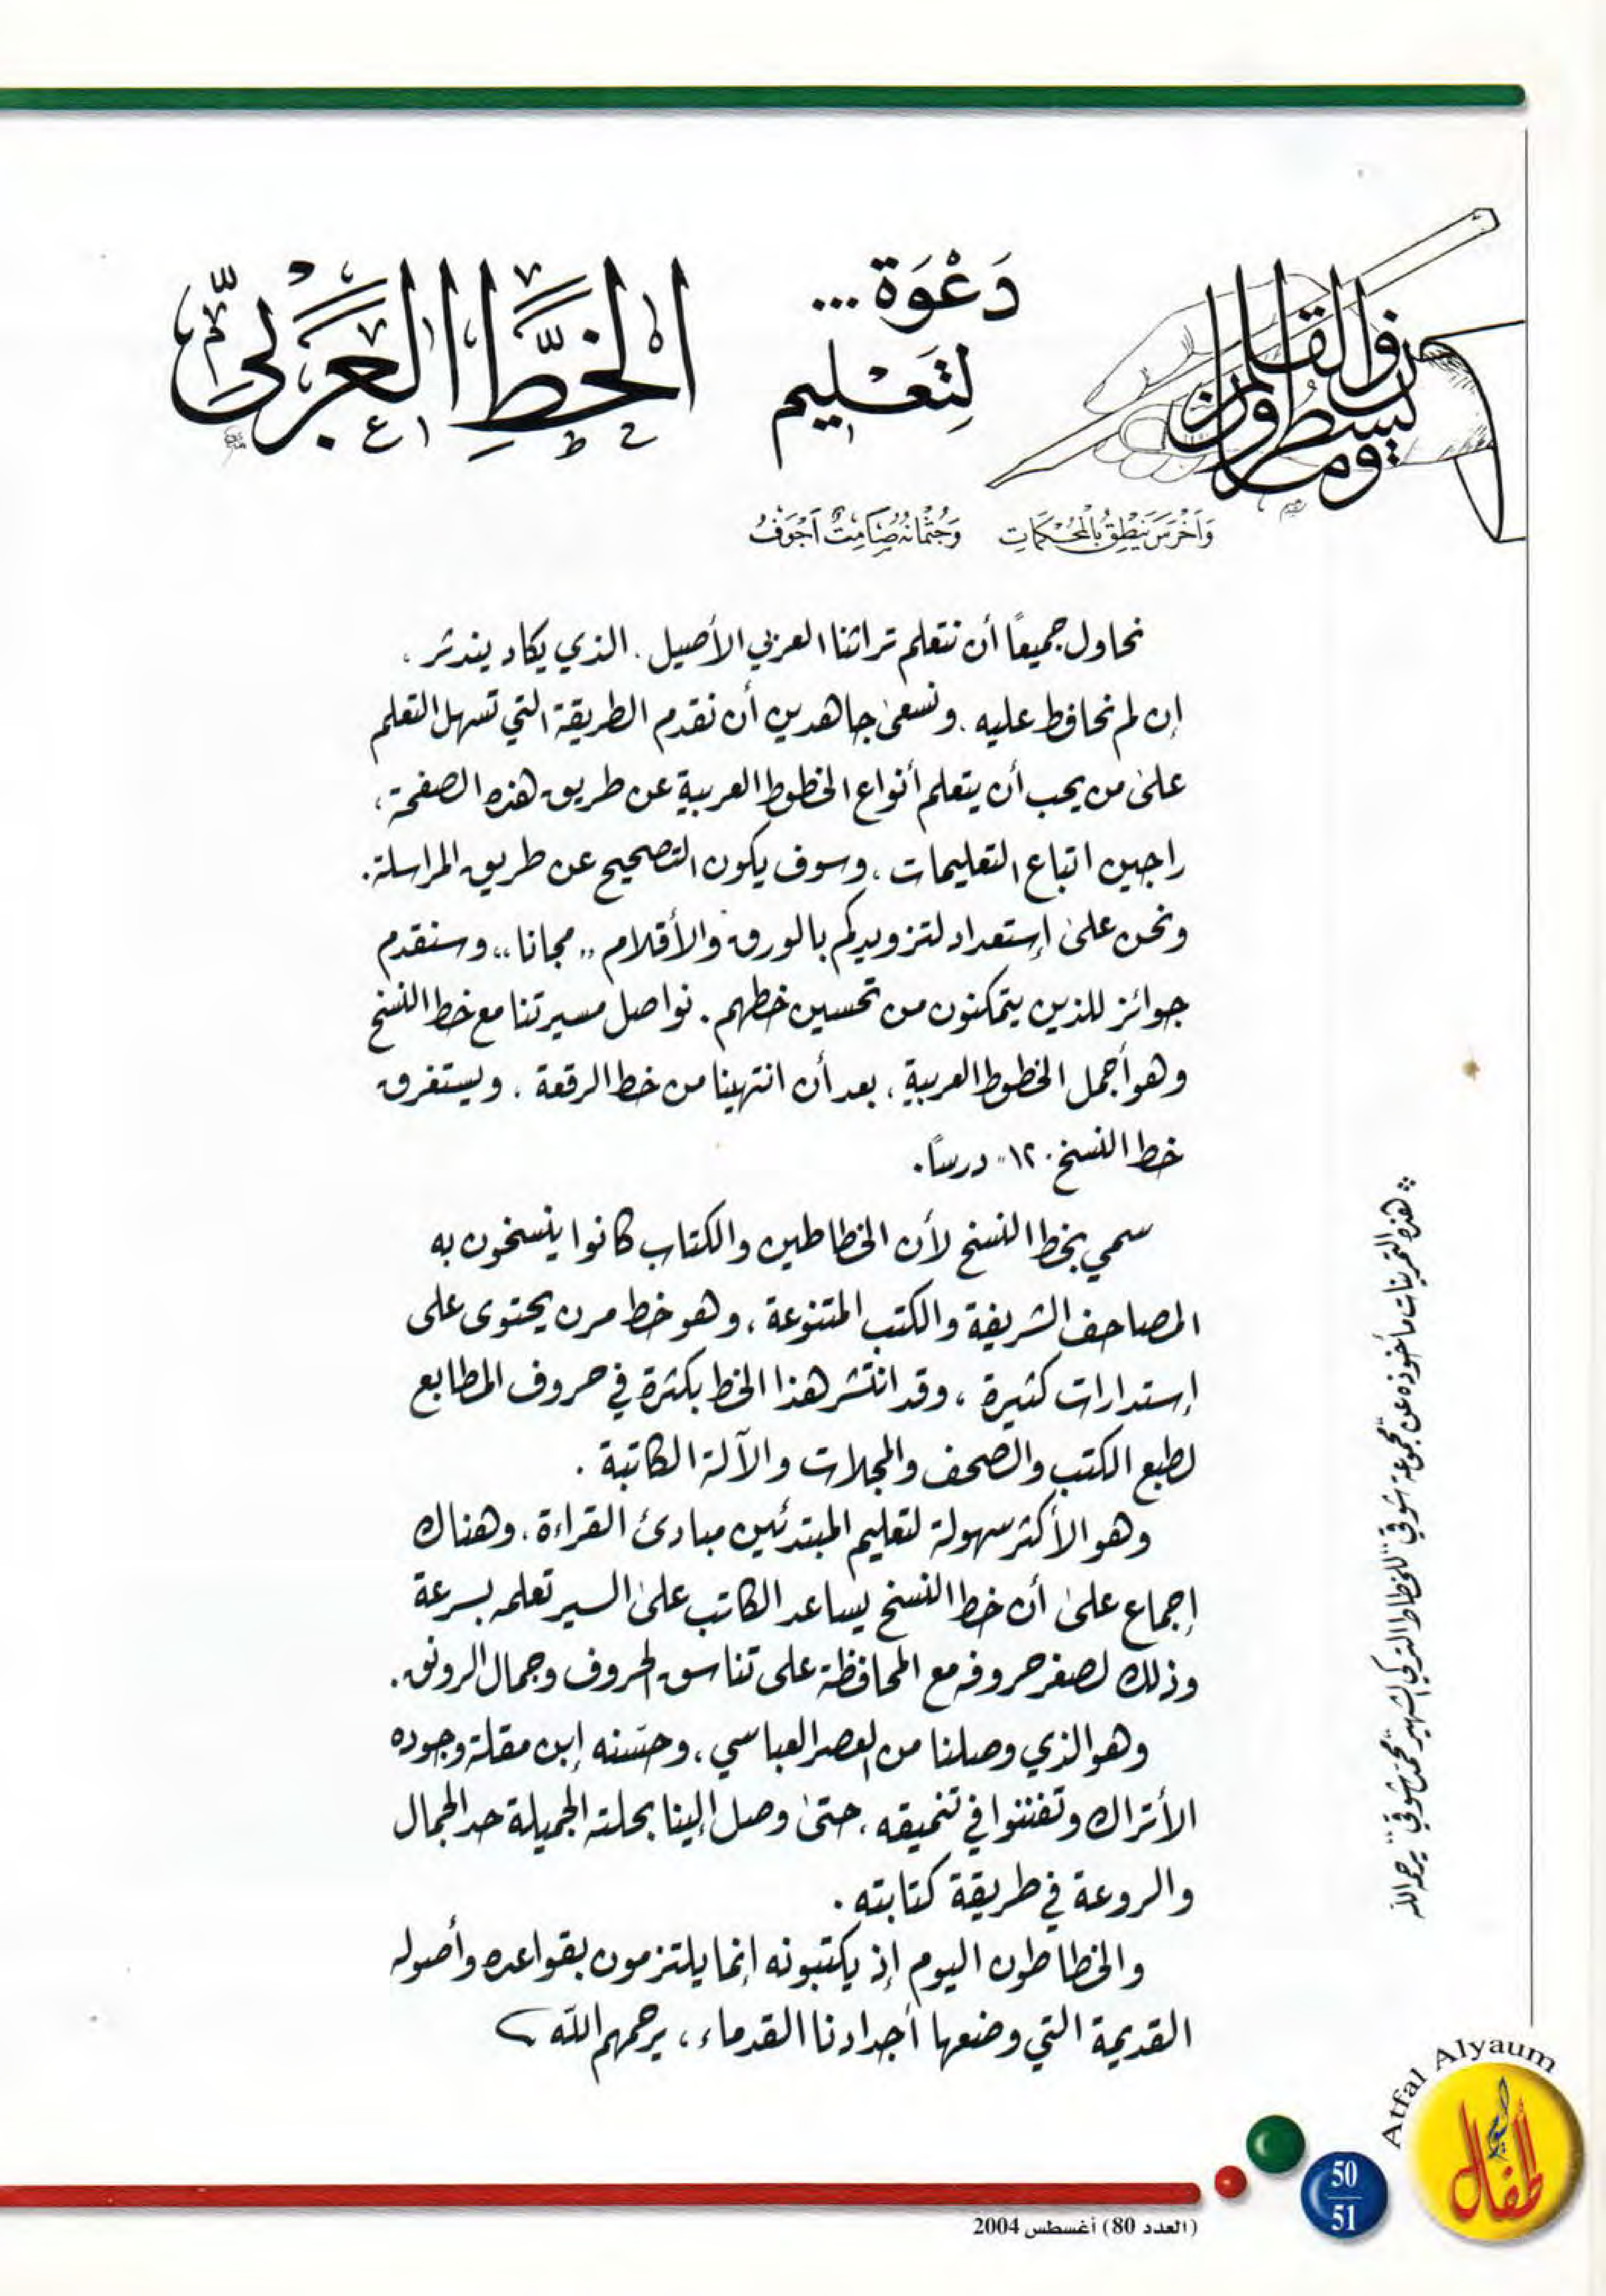 ن والقلم وما يسطرون
دَعْوَة ...
لِتَعْلِيم
الخَطِّ العَرَبيِّ
وَأَخْرَسَ يَنْطِقُ بِالْمُحْكَمَاتِ وَجُثْمَانُهُ صَامِتٌ أَجْوَفُ
نحاول جميعاً أن نتعلم تراثنا العربي الأصيل . الذي يكاد يندثر ،
إن لم نحافظ عليه . ونسعى جاهدين أن نقدم الطريقة التي تسهل التعلم
على من يحب أن يتعلم أنواع الخطوط العربية عن طريق هذه الصفحة ،
راجين اتباع التعليمات ، وسوف يكون التصحيح عن طريق المراسلة .
ونحن على إستعداد لتزويدكم بالورق والأقلام ,, مجانا ،، وسنقدم
جوائز للذين يتمكنون من تحسين خطهم . نواصل مسيرتنا مع خط النسخ
وهو أجمل الخطوط العربية ، بعد أن انتهينا من خط الرقعة . ويستغرق
خط النسخ "١٢" درساً .
سمي بخط النسخ لأن الخطاطين والكتاب كانوا ينسخون به
المصاحف الشريفة والكتب المتنوعة ، وهو خط مرن يحتوى على
إستدارات كثيرة ، وقد انتشر هذا الخط بكثرة في حروف المطابع
لطبع الكتب والصحف والمجلات والآلة الكاتبة .
وهو الأكثر سهولة لتعليم المبتدئين مبادئ القراءة . وهناك
إجماع على أن خط النسخ يساعد الكاتب على السير تعلمه بسرعة
وذلك لصغر حروفه مع المحافظة على تناسق الحروف وجمال الرونق .
وهو الذي وصلنا من العصر العباسي ، وحسّنه إبن مقلة وجوده
الأتراك وتفننوا في تنميقه ، حتى وصل إلينا بحلته الجميلة حد الجمال
والروعة في طريقة كتابته .
والخطاطون اليوم إذ يكتبونه إنما يلتزمون بقواعده وأصوله
القديمة التي وضعها أجدادنا القدماء ، يرحمهم الله
※ هذه التمرينات مأخوذه عن "مجموعة شوقي" للخطاط التركي الشهير "محمد شوقي" يرحمه الله
Atfal Alyaum
أطفال اليوم
50
51
(العدد 80) أغسطس 2004